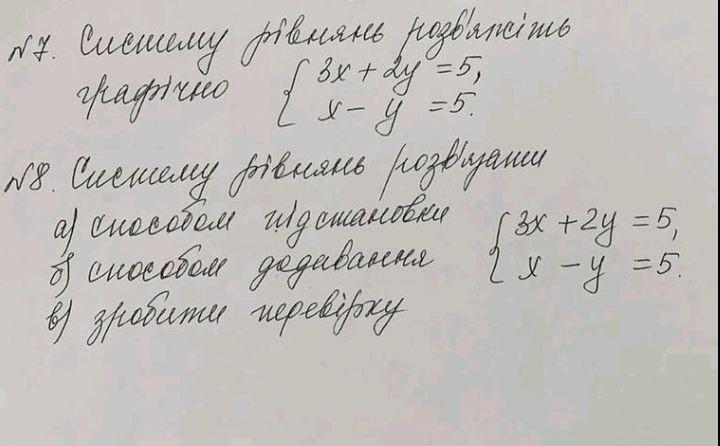 №7. Систему рівнянь розв'яжіть
графічно { 3x + 2y = 5,
x - y = 5.
№8. Систему рівнянь розв'язати
а) способом підстановки { 3x + 2y = 5,
б) способом додавання x - y = 5.
в) зробити перевірку